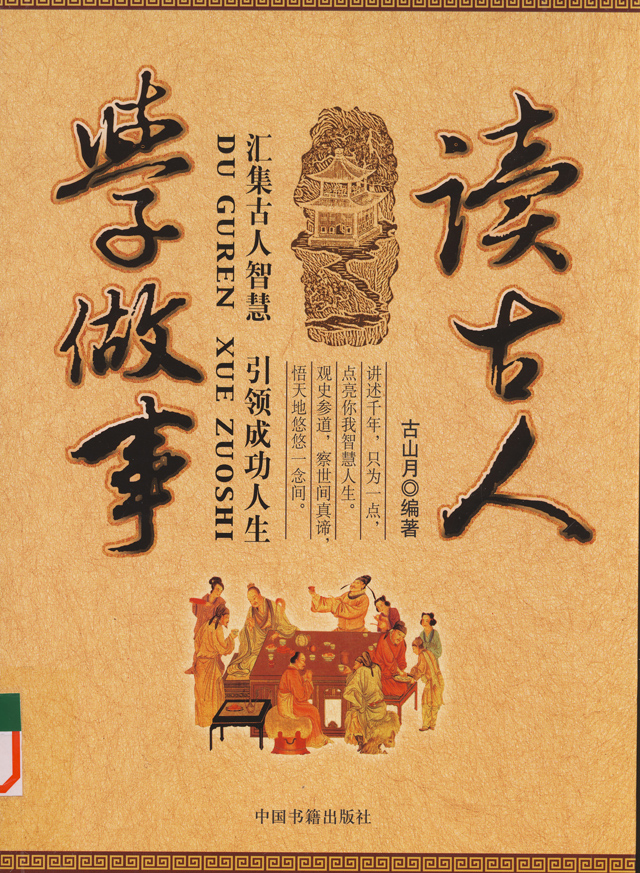 读古人
学做事
古山月◎编著
讲述千年，只为一点，
点亮你我智慧人生。
观史参道，察世间真谛，
悟天地悠悠一念间。
汇集古人智慧 引领成功人生
DU GUREN XUE ZUOSHI
中国书籍出版社